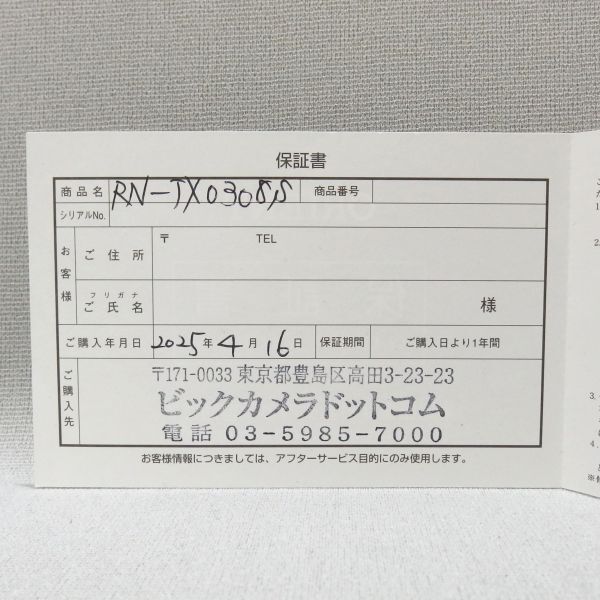 保証書
商品名 RN-TX0308S 商品番号
シリアルNo.
お客様
ご住所 〒 TEL
フリガナ
ご氏名 様
ご購入年月日 2025年4月16日 保証期間 ご購入日より1年間
ご購入先
〒171-0033 東京都豊島区高田3-23-23
ビックカメラドットコム
電話 03-5985-7000
お客様情報につきましては、アフターサービス目的にのみ使用します。